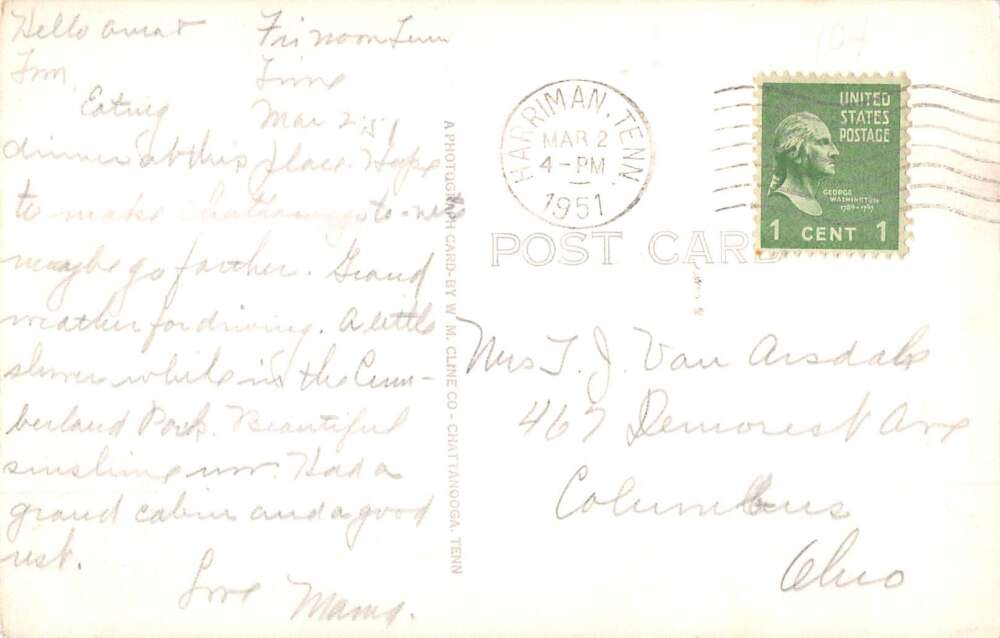 Hello
Fri noon Tenn
Time
Mar 2, 51
Eating
dinner at this place. Hope
to make
maybe go farther. Grand
weather for driving. A little
slower while in the Cum-
berland Park. Beautiful
sunshine now. Had a
grand cabin and a good
rest.
Love Mama.
A PHOTOGRAPH CARD-BY W. M. CLINE CO - CHATTANOOGA, TENN
HARRIMAN, TENN.
MAR 2
4-PM
1951
UNITED
STATES
POSTAGE
GEORGE
WASHINGTON
1789-1797
1 CENT 1
POST CARD
Mrs T. J. Van Arsdale
467 Demorest Ave
Columbus
Ohio